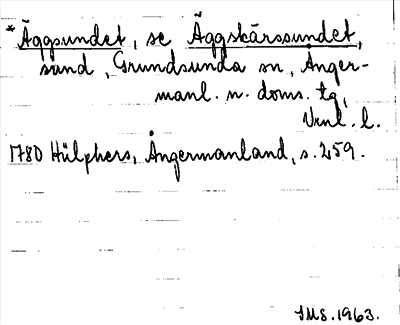 * Äggsundet, se Äggskärssundet,
sund, Grundsunda sn, Ånger-
manl. n. doms. tg,
Vnl. l.
1780 Hülphers, Ångermanland, s. 259.
IMS. 1963.